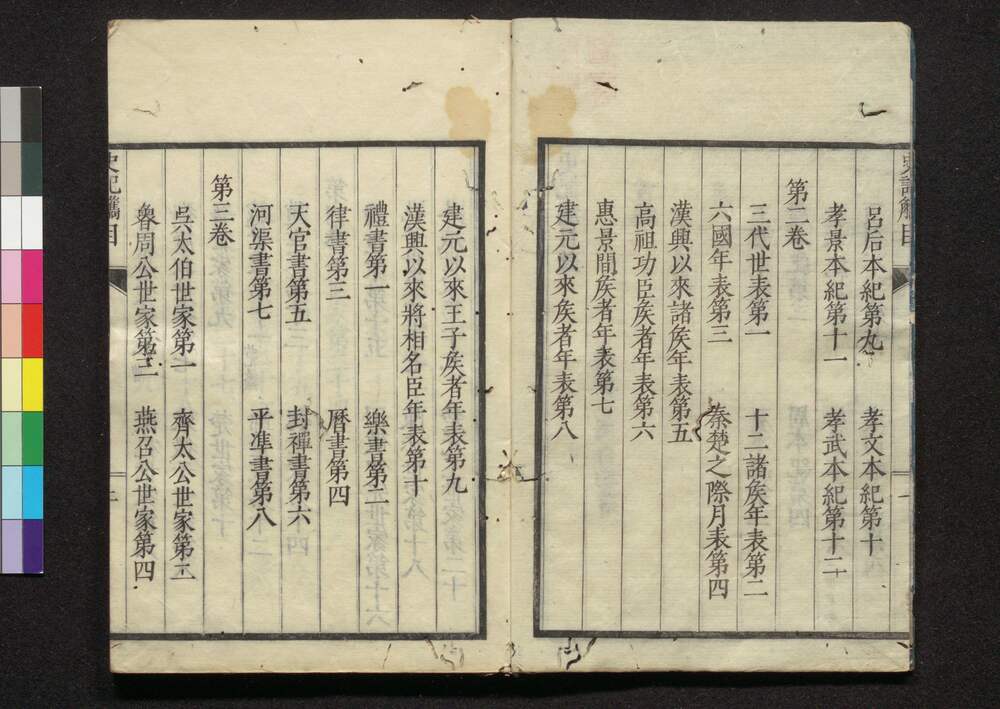 呂后本紀第九 孝文本紀第十
孝景本紀第十一 孝武本紀第十二
第二卷
三代世表第一 十二諸矦年表第二
六國年表第三 秦楚之際月表第四
漢興以來諸矦年表第五
高祖功臣矦者年表第六
惠景間矦者年表第七
建元以來矦者年表第八
建元以來王子矦者年表第九
漢興以來將相名臣年表第十
禮書第一 樂書第二
律書第三 曆書第四
天官書第五 封禪書第六
河渠書第七 平準書第八
第三卷
吳太伯世家第一 齊太公世家第二
魯周公世家第三 燕召公世家第四